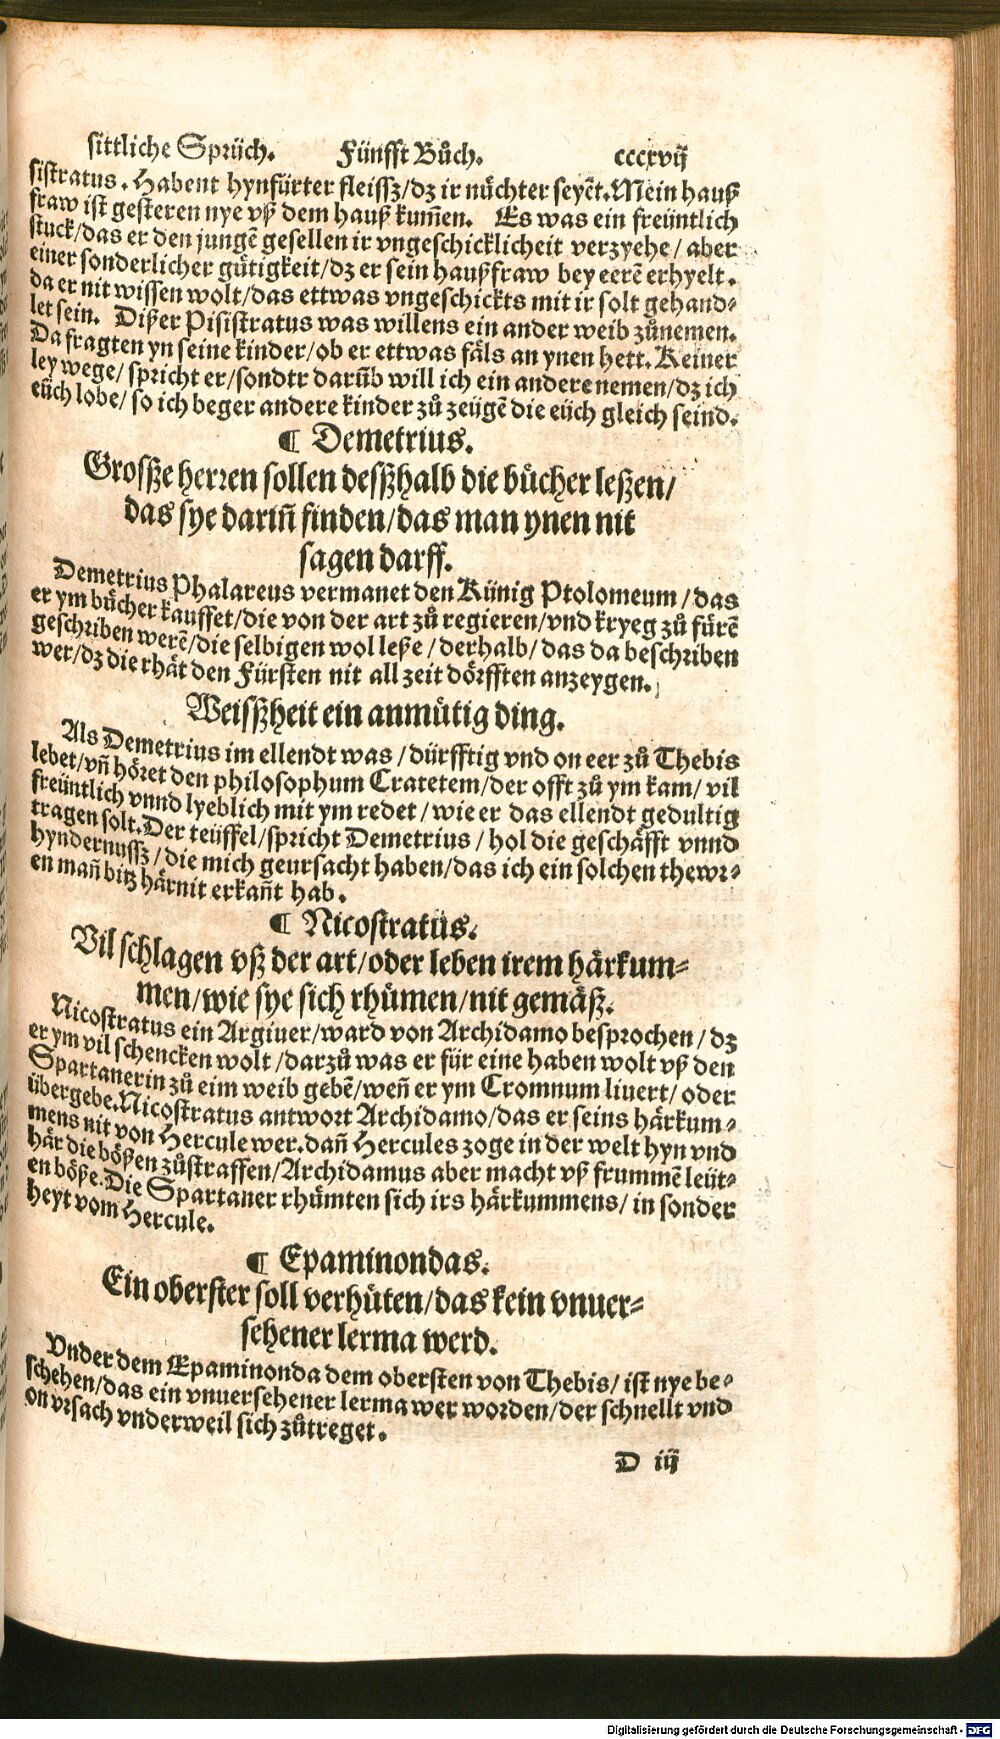 sittliche Sprüch. Fünfft Bůch. cccxvij
sistratus. Habent hynfürter fleissz/dz ir nůchter seyēt. Mein hauß
fraw ist gesteren nye vß dem hauß kum̃en. Es was ein freüntlich
stuck/das er den jungē gesellen ir vngeschicklicheit verzyehe/ aber
einer sonderlicher gütigkeit/dz er sein haußfraw bey eerē erhyelt.
da er nit wissen wolt/das ettwas vngeschickts mit ir solt gehand-
let sein. Dißer Pisistratus was willens ein ander weib zůnemen.
Da fragten yn seine kinder/ob er ettwas fäls an ynen hett. Keiner
ley wege/ spricht er/sondtr darũb will ich ein andere nemen/dz ich
eüch lobe/ so ich beger andere kinder zů zeügē die eüch gleich seind.
¶ Demetrius.
Grosße herren sollen desßhalb die bücher leßen/
das sye dariñ finden/das man ynen nit
sagen darff.
Demetrius Phalareus vermanet den Künig Ptolomeum/das
er ym bücher kauffet/die von der art zů regieren/vnd kryeg zů fürē
geschriben werē/die selbigen wol leße/derhalb/das da beschriben
wer/dz die rhät den Fürsten nit all zeit dörfften anzeygen.
Weisßheit ein anmütig ding.
Als Demetrius im ellendt was/dürfftig vnd on eer zů Thebis
lebet/vñ höret den philosophum Cratetem/der offt zů ym kam/ vil
freüntlich vnnd lyeblich mit ym redet/wie er das ellendt gedultig
tragen solt. Der teüffel/spricht Demetrius/ hol die geschäfft vnnd
hyndernussz/die mich geursacht haben/das ich ein solchen thewr-
en mañ bitz härnit erkañt hab.
¶ Nicostratüs.
Vil schlagen vß der art/oder leben irem härkum-
men/wie sye sich rhümen/nit gemäß.
Nicostratus ein Argiuer/ward von Archidamo besprochen/dz
er ym vil schencken wolt/darzů was er für eine haben wolt vß den
Spartanerin zů eim weib gebē/weñ er ym Cromnum liuert/ oder
übergebe. Nicostratus antwort Archidamo/das er seins härkum-
mens nit von Hercule wer. dañ Hercules zoge in der welt hyn vnd
här die bößen zůstraffen/Archidamus aber macht vß frummē leüt-
en böße. Die Spartaner rhümten sich irs härkummens/ in sonder
heyt vom Hercule.
¶ Epaminondas.
Ein oberster soll verhüten/das kein vnuer-
sehener lerma werd.
Vnder dem Epaminonda dem obersten von Thebis/ ist nye be-
schehen/das ein vnuersehener lerma wer worden/der schnellt vnd
on vrsach vnderweil sich zůtreget.
D iij
Digitalisierung gefördert durch die Deutsche Forschungsgemeinschaft - DFG